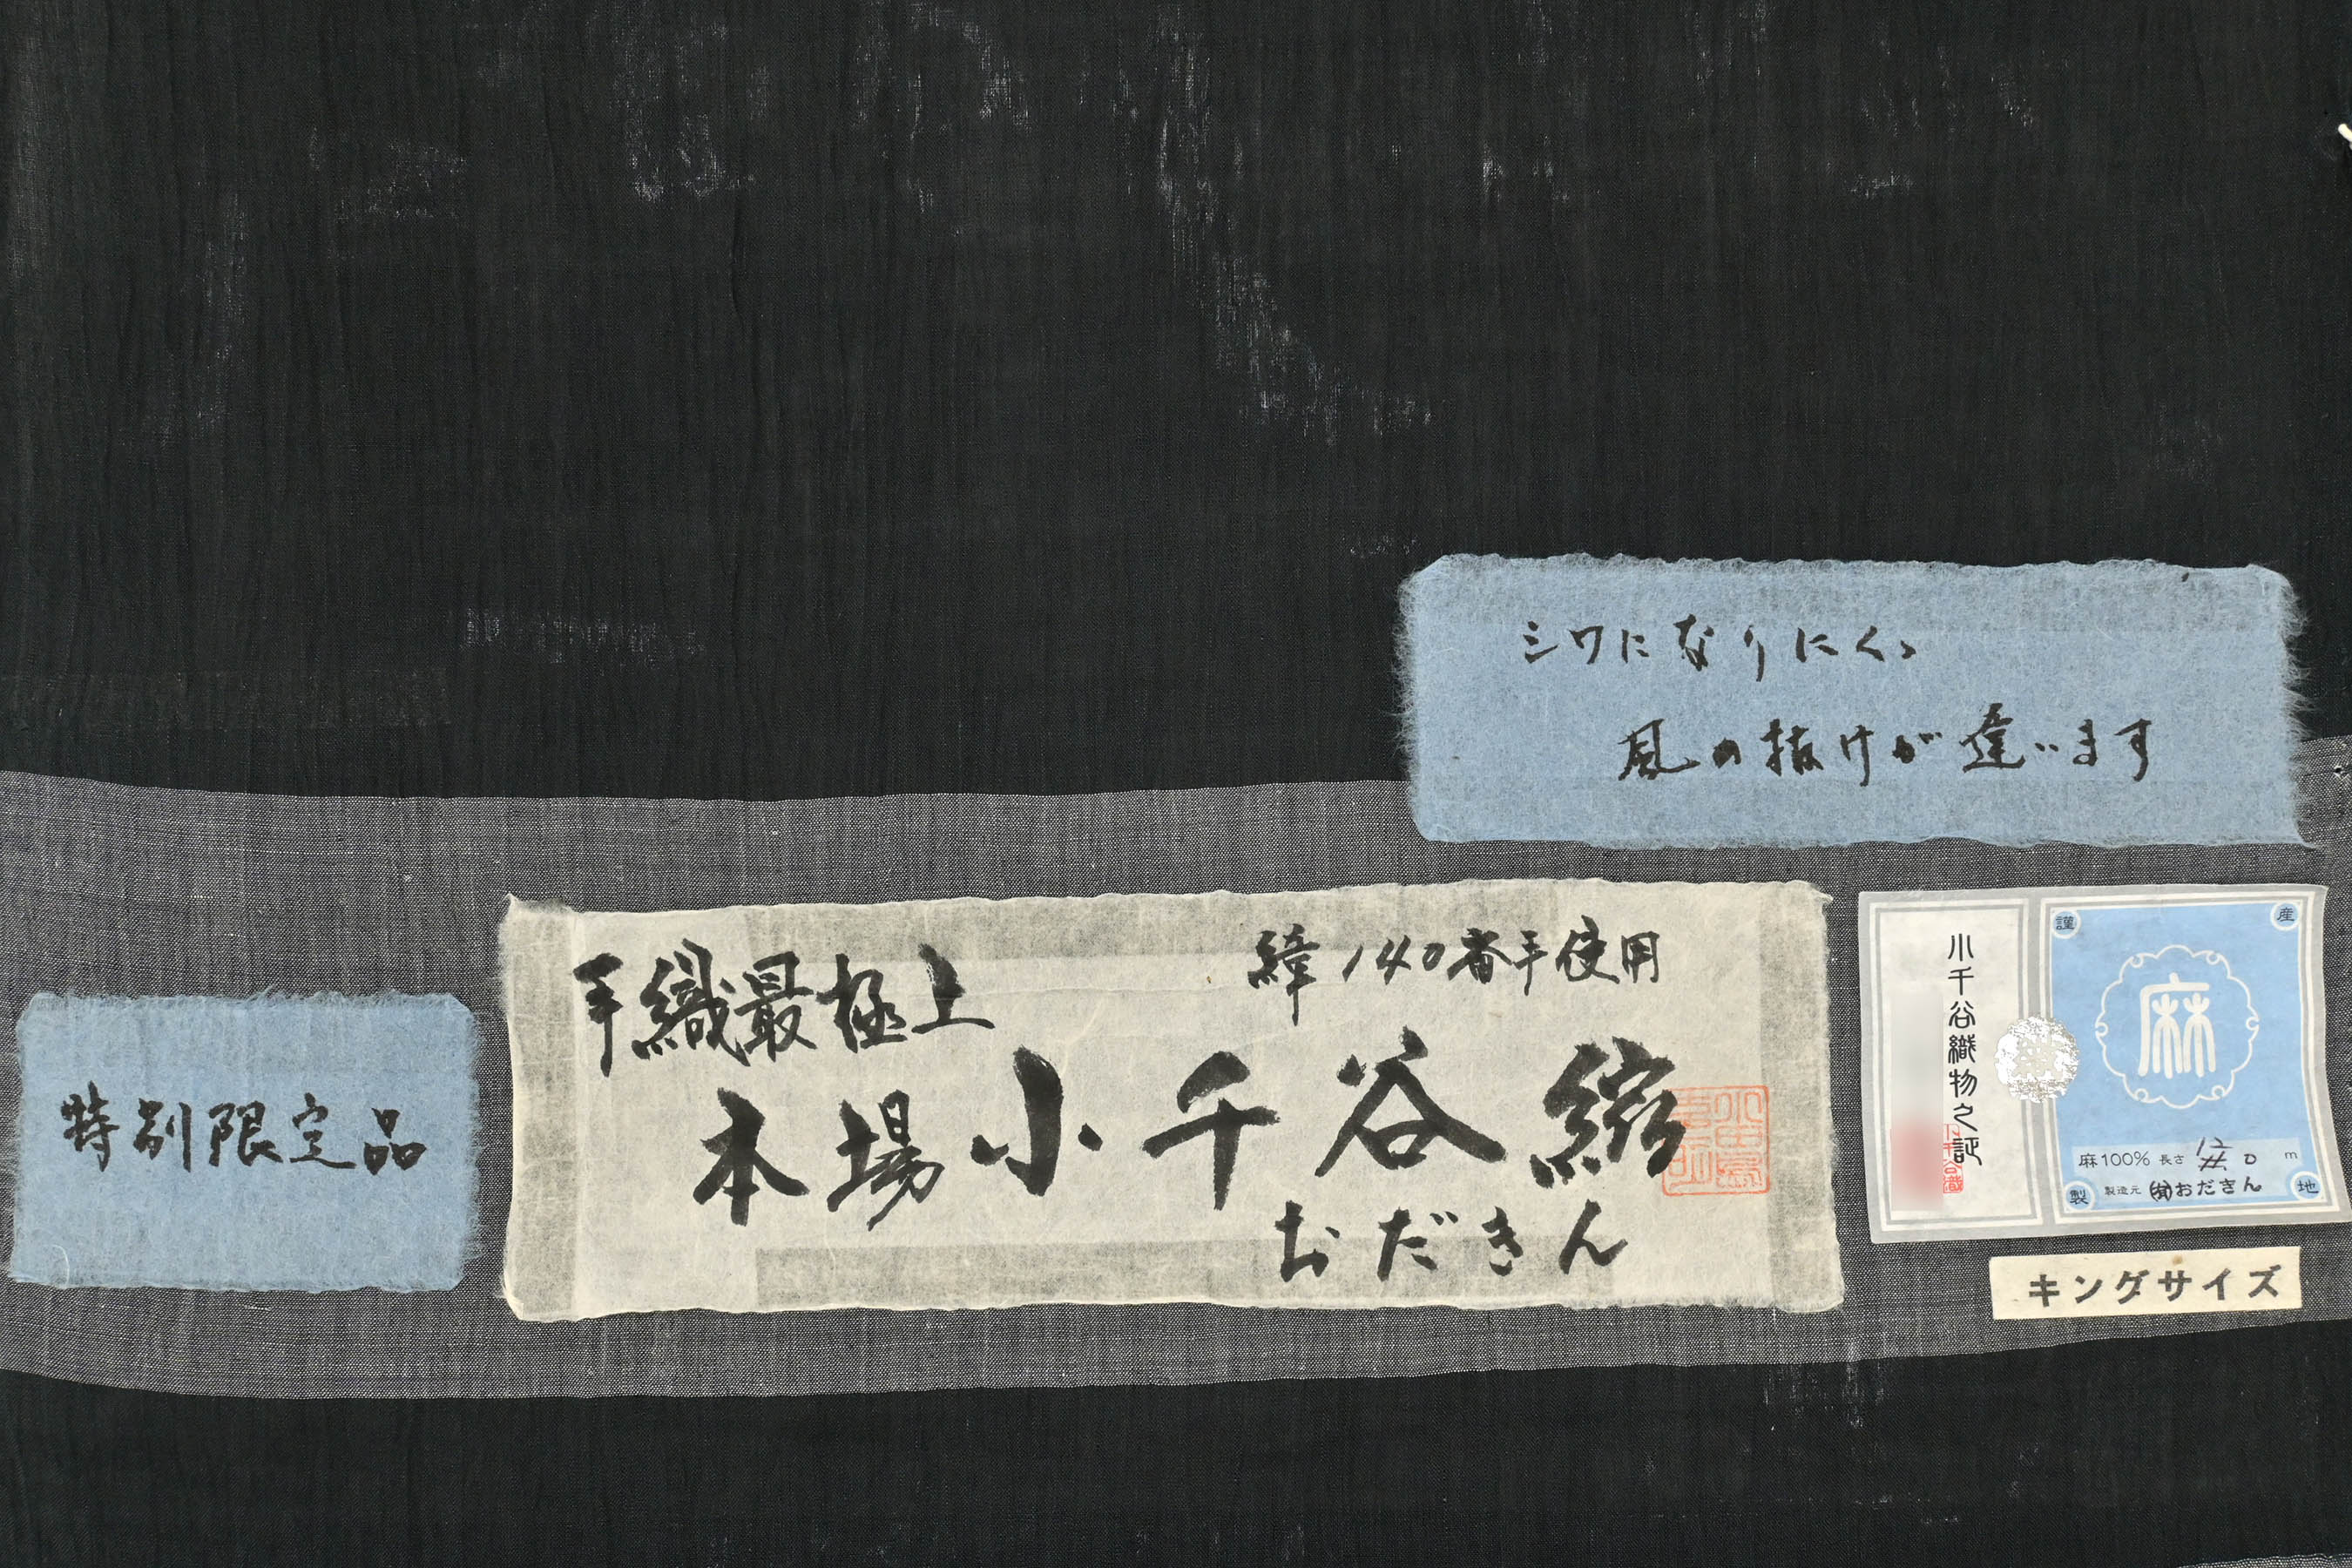 シワになりにくい
風の抜けが違います
特別限定品
手織最極上
緯140番手使用
本場小千谷縮
おだきん
小千谷織物之証
謹
産
麻
麻100% 長さ 12. 0 m
製
製造元 (有)おだきん
地
キングサイズ